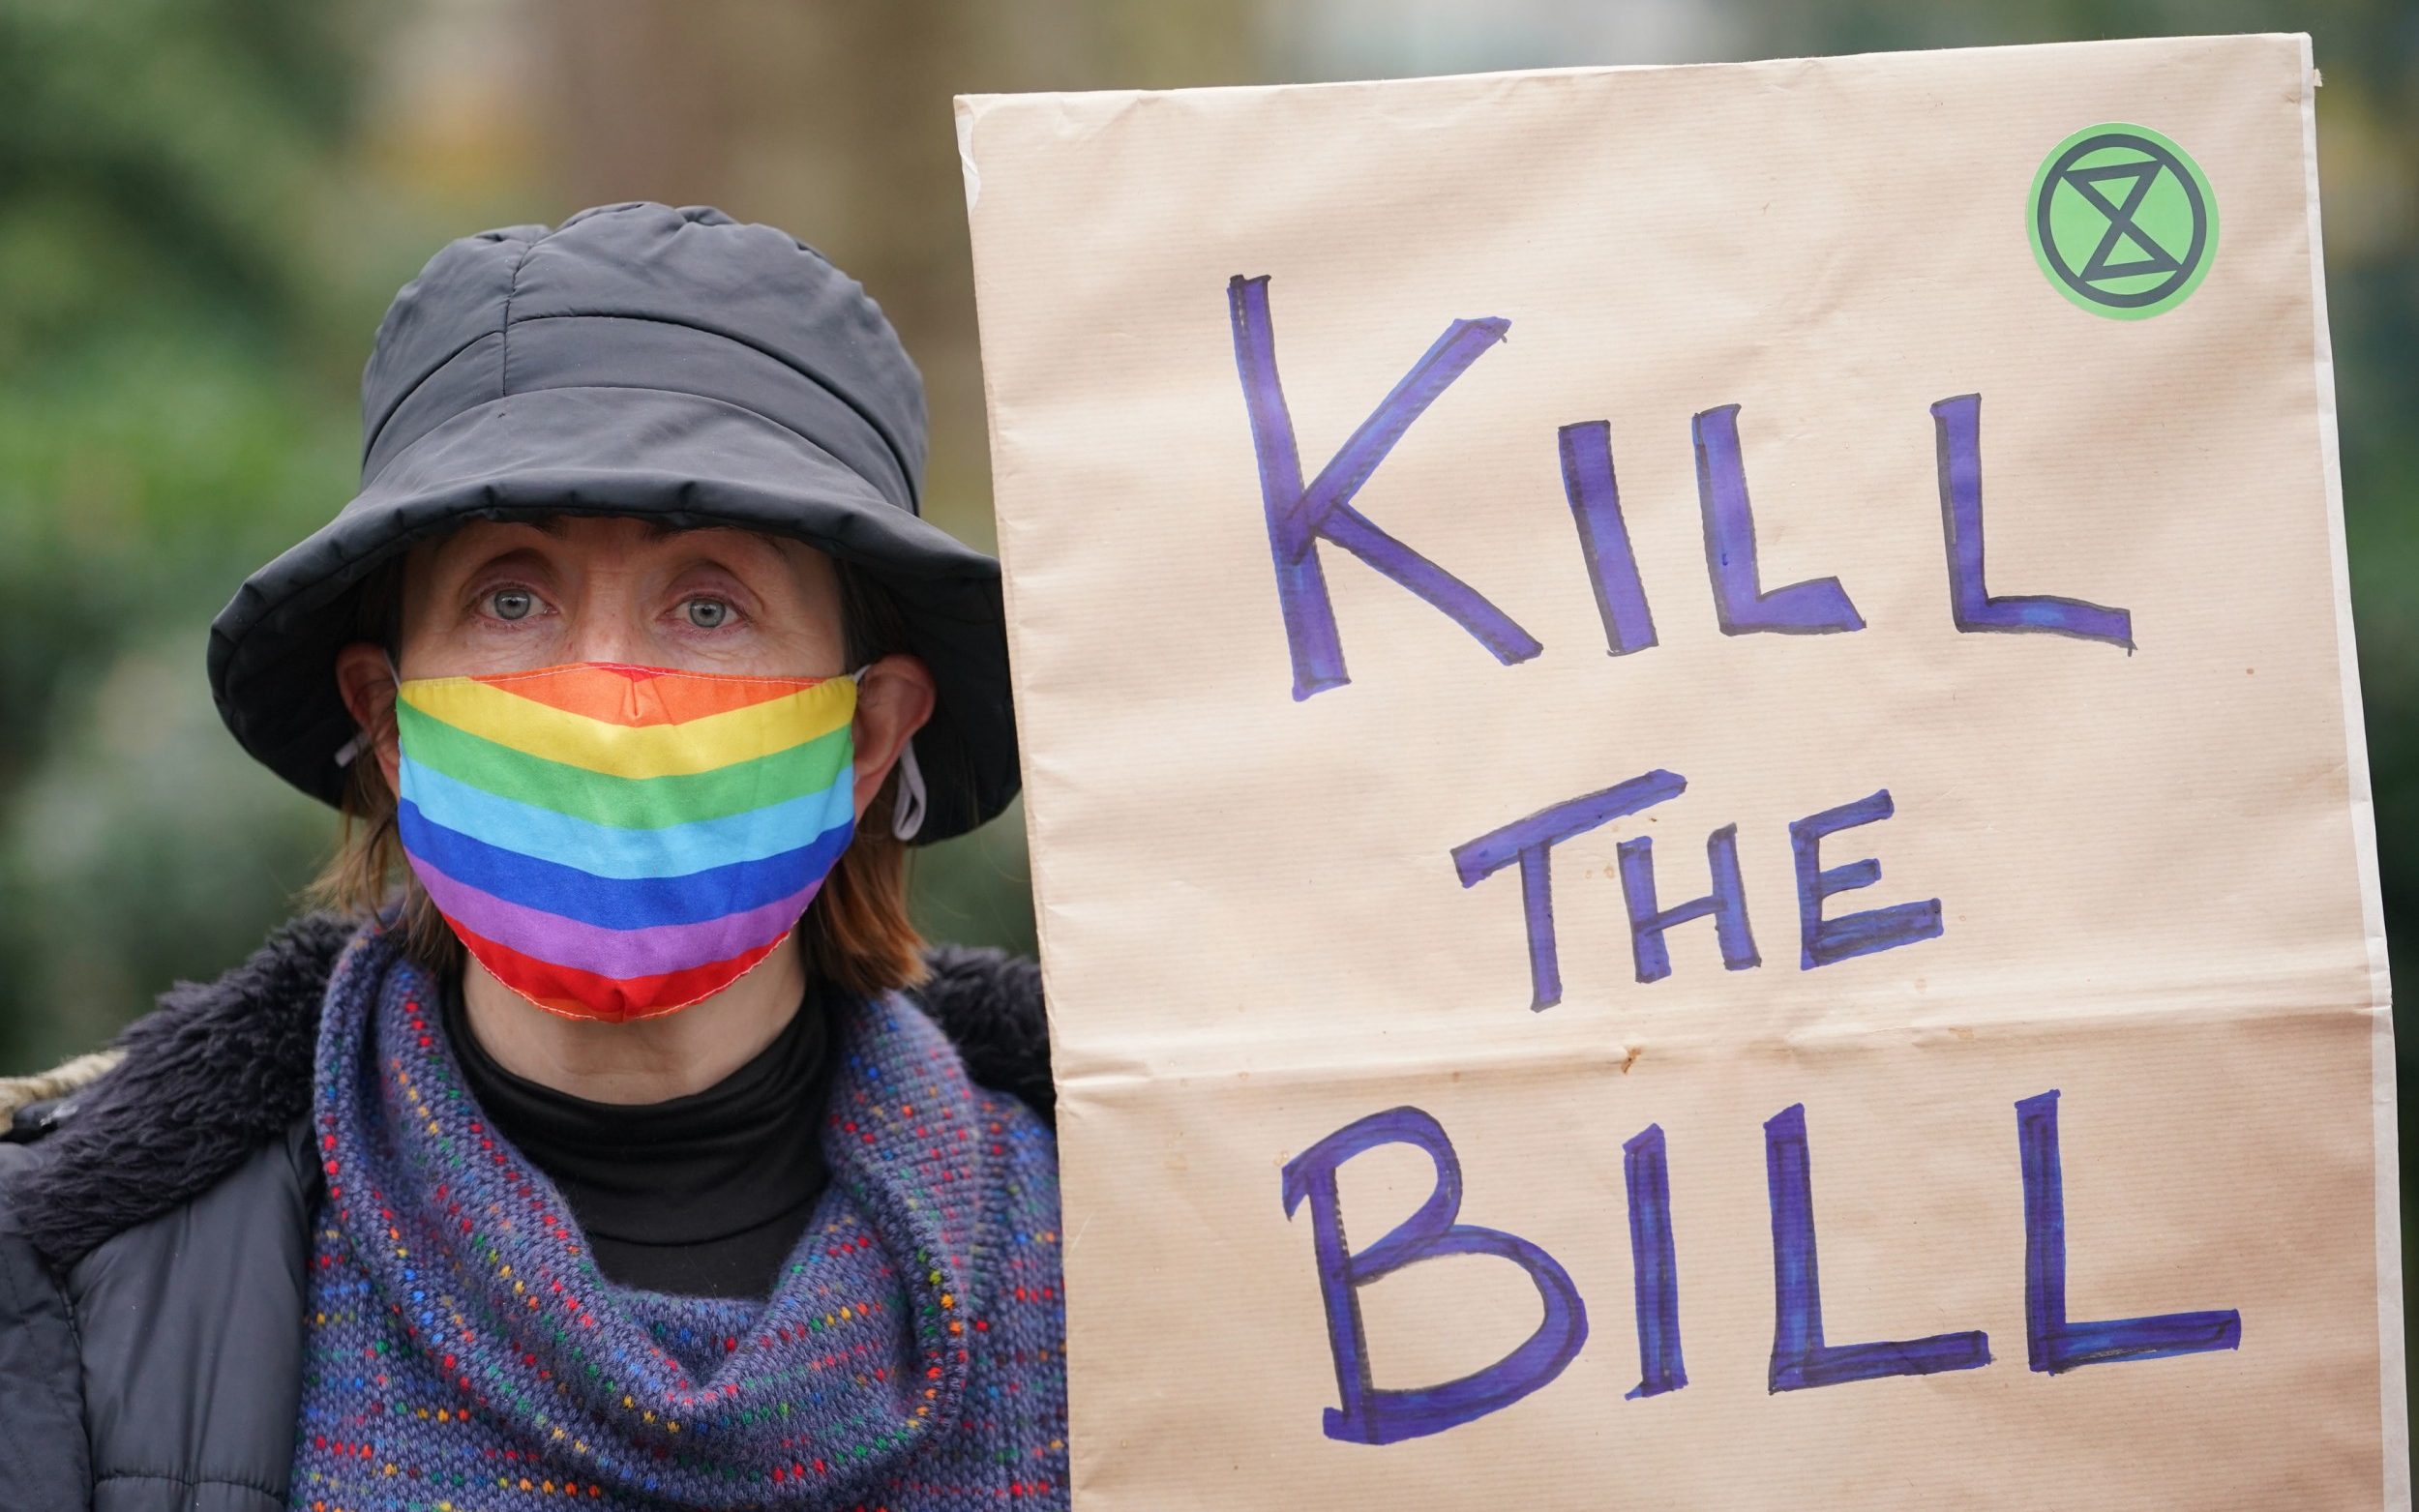 KILL
THE
BILL